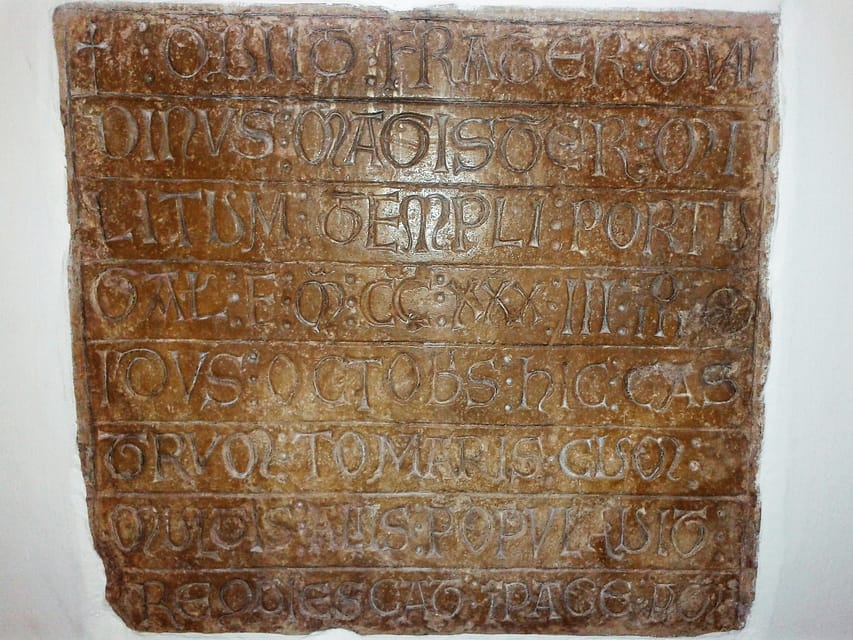 + : OBIIT : FRATER : GVAL
DINVS : MAGISTER : MI
LITUM : TEMPLI : PORTU
GAL : E : M : CC : XXX : III : III
IDVS : OCTOBS : HIC : CAS
TRVM : TOMARIS : CUM :
MULTIS : ALIIS : POPULAVIT
REQUIESCAT : I PACE :